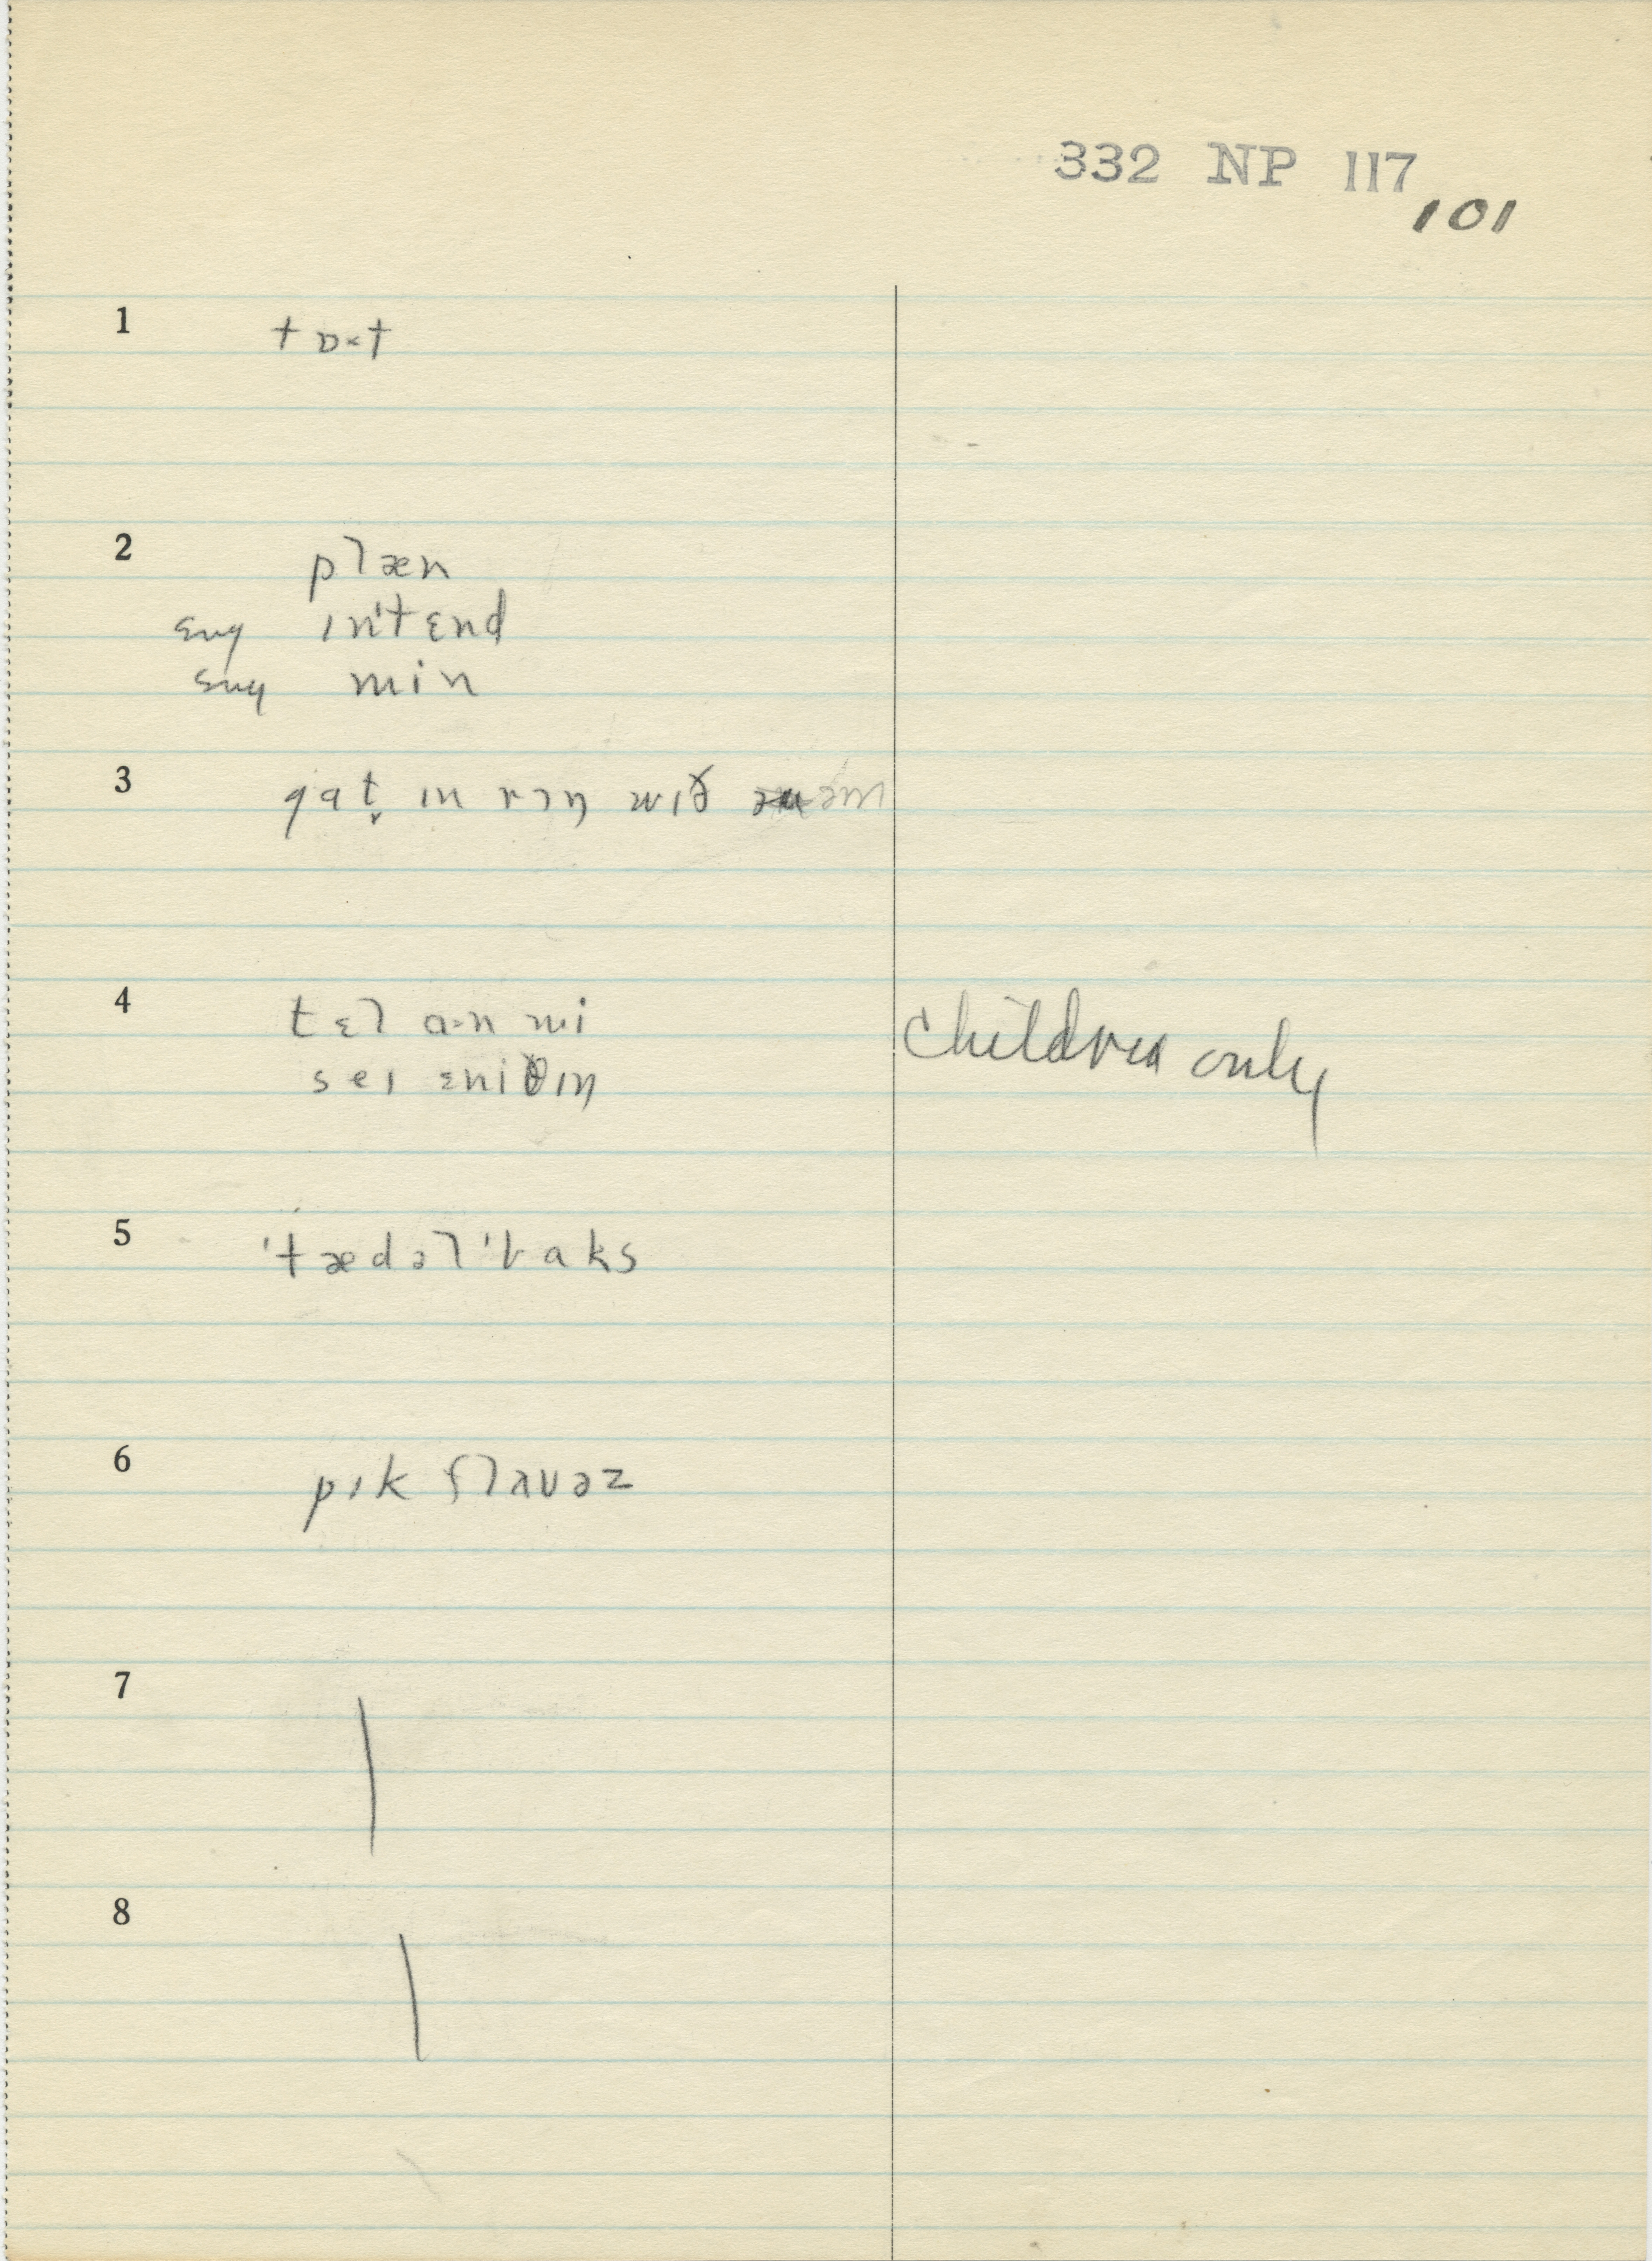 332 NP 117
101
1 tɒ˞t
2 plæn
sug ɪn'tɛnd
sug min
3 gat̬ ɪn rɔŋ wɪð əm
4 tɛl ɑ·n mi
sɛɪ ɛniðɪŋ
Children only
5 'tædəl'baks
6 pɪk flaʊəz
7
8